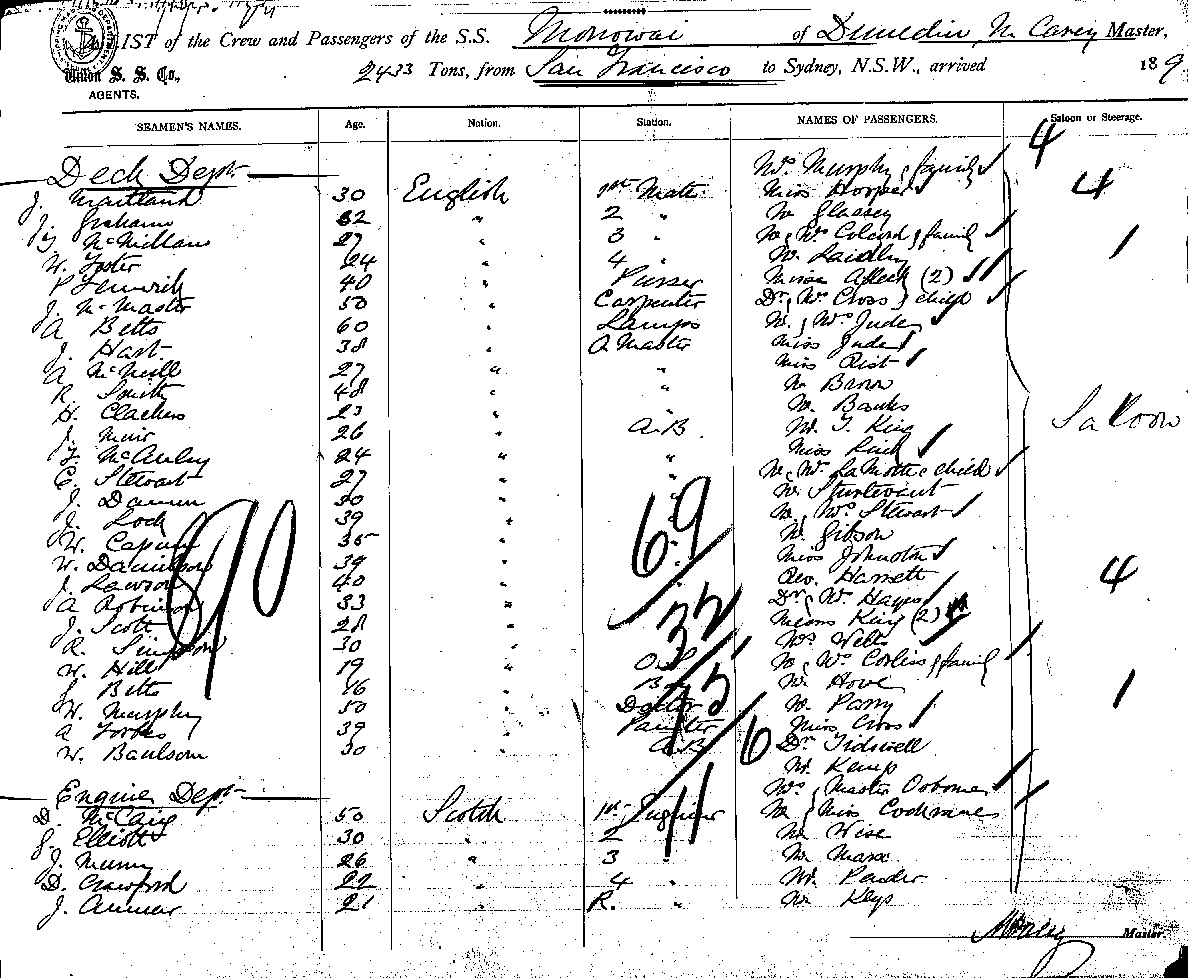 LIST of the Crew and Passengers of the S.S. Monowai of Dunedin, M. Carey Master,
Union S. S. Co., 2433 Tons, from San Francisco to Sydney, N.S.W., arrived 189
AGENTS.
SEAMEN'S NAMES. Age. Nation. Station. NAMES OF PASSENGERS. Saloon or Steerage.
4
Deck Dept. Mrs Murphy & family
J. Maitland 30 English 1st Mate Miss Hooper 4
Graham 32 " 2 " Mr Glassey
McMillan 27 " 3 " Mr & Mrs Colcord & family 1
W. Foster 24 " 4 " Mr. Laidley
P Fenwick 40 " Purser Misses Affleck (2)
J. McMaster 50 " Carpenter Dr & Mrs Cross & child
A Betts 60 " Lamps Mr. & Mrs Jude
J. Hart 38 " Q Master Miss Jude
A McNeill 27 " " Miss Rist
R. Smith 48 " " Mr Brown
H. Clachers 23 " " Mr. Banks
J. Muir 26 " A.B. Mr. T. King Saloon
McAuley 24 " " Miss
C. Stewart 27 " " Mr & Mrs LaMotte & child
J. 30 " " Mr. Sturtevant
J. Lock 39 " 69 Mr & Mrs Stewart
W. 35 " Mr. Gibson
W. Danielson 39 " Miss Johnston
J. Lawson 40 " Rev. Harnett 4
A Robinson 33 " Dr & Mrs Hayes
J. Scott 28 " Misses King (2)
90
R. Simpson 30 " Mrs Welts
W. Hill 19 " O.S Mr & Mrs Corliss & family
J. Betts 16 " Boy Mr. Howe 1
W. Murphy 50 " Doctor Mr. Parry
A Forbes 39 " Painter Miss Cross
W. Baulson 30 " A.B. 6 Dr Tidswell
Mr. Kemp
Engine Dept. Mrs & Master Osborne
D. McCaig 50 Scotch 1st Engineer Mr & Miss Cochrane
Elliott 30 " 2 " 11 Mr Wise
J. 26 " 3 " Mr. Marx
D. Crawford 22 " 4 " Mr. Pender
J. 21 " R. " Mr Keys
Master.